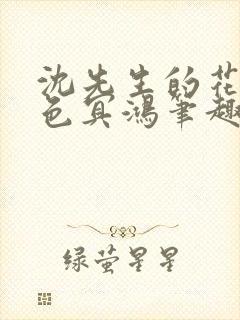 沈先生的花
色冥鸿笔趣
绿萤星星